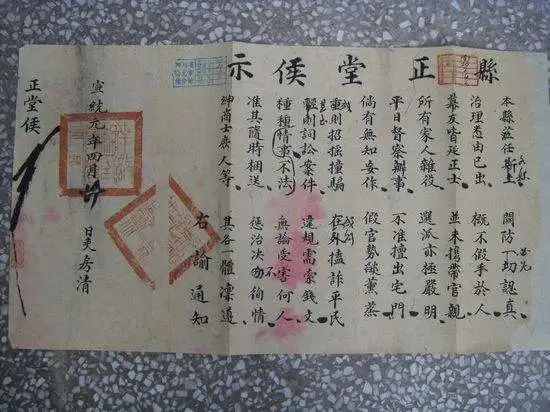 縣正堂侯示
本縣蒞任斯土 關防一切認真
治理悉由己出 概不假手於人
幕友皆延正士 並未攜帶官親
所有家人雜役 選派亦極嚴明
平日督察辦事 不准擅出宅門
倘有無知妄作 假官勢燄薰蒸
重則招搖撞騙 在外搕詐平民
輕則詞訟案件 違規需索錢文
種種情事不法 無論受害何人
准其隨時捆送 懲治决不徇情
紳商士庶人等 其各一體凜遵
右諭通知
宣統元年四月 日
正堂侯